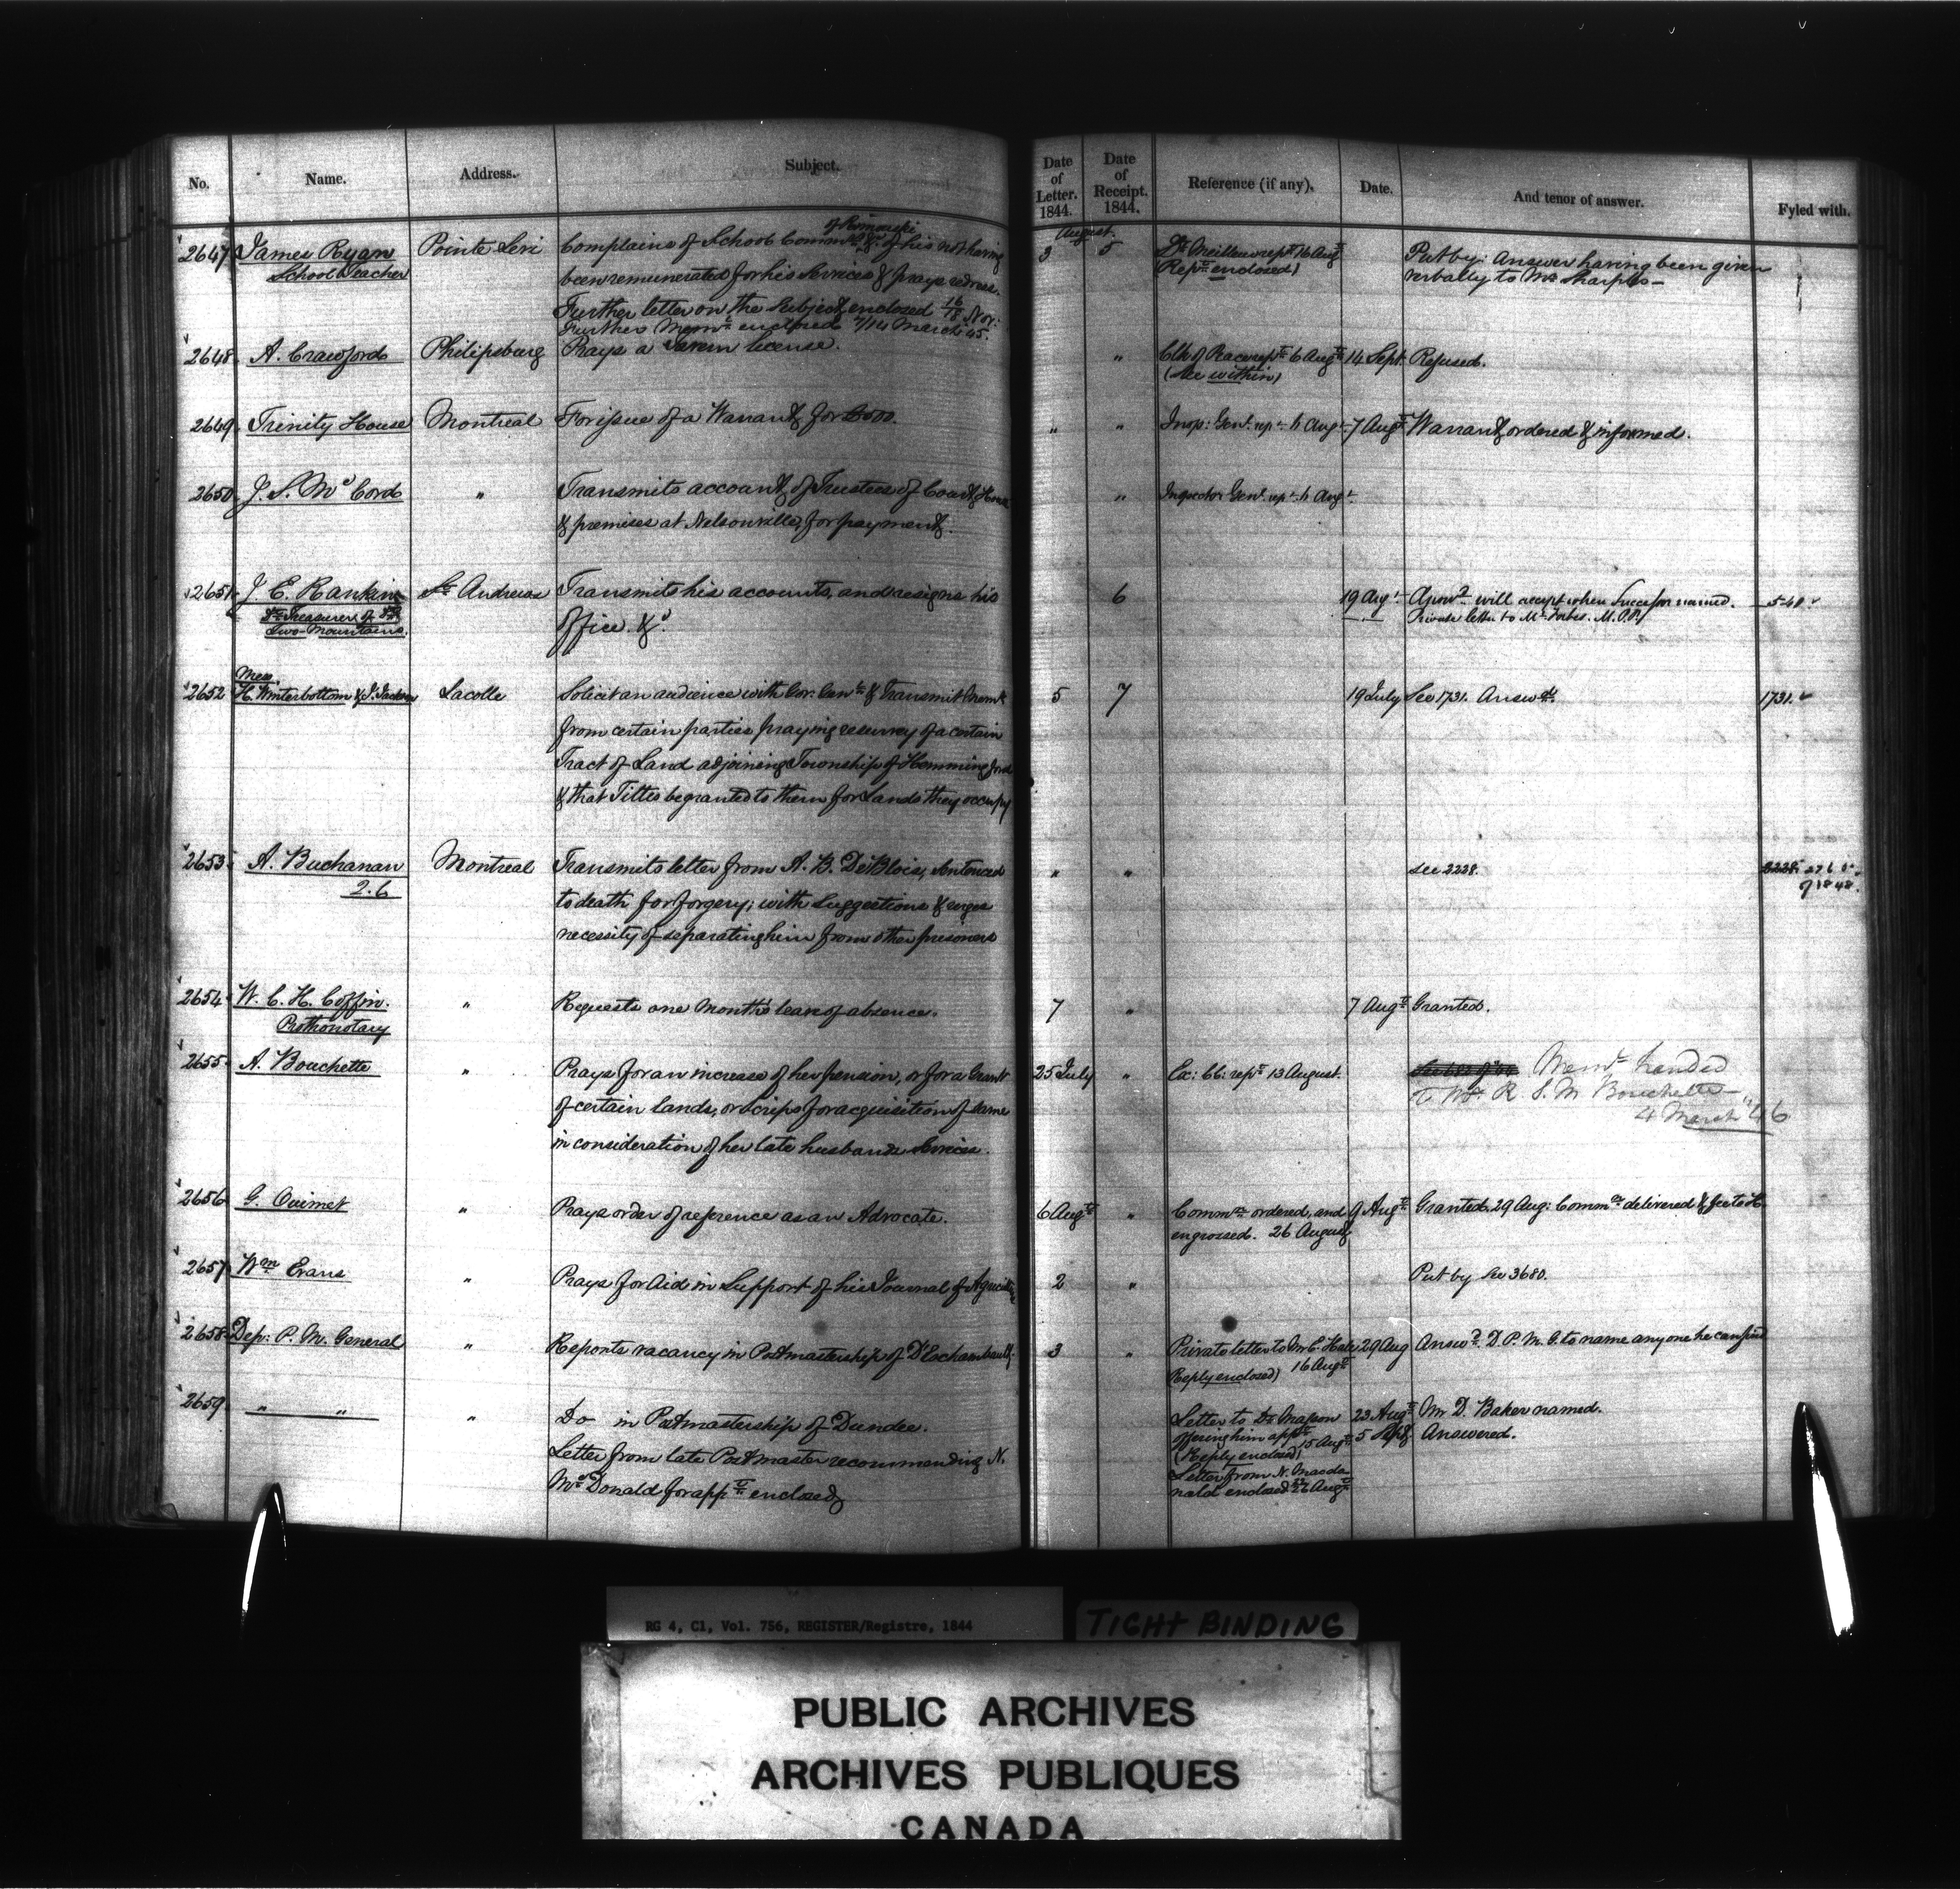 No. Name. Address. Subject. Date of Letter. 1844. Date of Receipt. 1844. Reference (if any). Date. And tenor of answer. Fyled with.
August
of Rimouski
2647 James Ryan Pointe Levi Complains of School Commrs &c. of his not having 3 5 Dr Meilleur rept 16 Augt Put by: Answer having been given
School Teacher been remunerated for his Services & prays redress. Rept enclosed) verbally to Mr Sharples—
Further letter on the Subject enclosed 16/18 Nov:
Further Memr enclosed 7/14 March 45.
2648 A. Crawford Philipsburg Prays a Tavern license. " Clk of Peace rept 6 Augt 14 Sept. Refused.
(See within)
2649 Trinity House Montreal For issue of a Warrant for £500. " " Insp: Genl. rept 6 Augt 7 Augt Warrant ordered & informed.
2650 J. S. McCord " Transmits account of Trustees of Court House " Inspector Genl. rept 6 Augt.
& premises at Nelsonville, for payment.
2651 J. E. Rankin St Andrews Transmits his accounts, and resigns his 6 19 Augt Answd will accept when Successor named. 540
Treasurer of office &c. Private letter to Mr Forbes. M.P.P.)
Two Mountains.
Mess.
2652 H. Winterbottom & J. Jackson Lacolle Solicit an audience with Gov. Genl & Transmit Meml 5 7 19 July See 1731. Answd. 1731.
from certain parties praying resurvey of a certain
Tract of Land adjoining Township of Hemmingford
& that Titles be granted to them for Lands they occupy
2653 A. Buchanan Montreal Transmits letter from A. B. DeBlois, sentenced " " See 2228. 2228.
2.6 to death for forgery; with Suggestions & urges of 1848.
necessity of separating him from other prisoners
2654 W. C. H. Coffin. " Requests one month's leave of absence. 7 " 7 Augt Granted.
Prothonotary
2655 A. Bouchette " Prays for an increase of her pension, or for a Grant 25 July " Ex: Co: rept 13 August. Meml handed
of certain lands, or Scrips for acquisition of same to Mr R S. M Bouchette—
in consideration of her late husbands Services. 4 March "46
2656 G. Ouimet " Prays order of reference as an Advocate. 6 Augt " Commn ordered, and 9 Augt Granted. 29 Aug: Commn delivered &
engrossed. 26 August
2657 Wm Evans " Prays for Aid in Support of his Journal of Agriculture 2 " Put by See 3680.
2658 Dep: P. M. General " Reports vacancy in Postmastership of D'Eschambault 3 " Private letter to Mr E Hale 29 Aug Answd. D P. M. G. to name anyone he can find
Reply enclosed) 16 Augt
2659 " " " Do in Postmastership of Dundee. Letter to Dr Masson 23 Augt Mr D. Baker named.
offering him appt 15 Augt 5 Sept Answered.
Letter from late Postmaster recommending N. (Reply enclosed)
McDonald for appt enclosed Letter from N. Macdo
nald enclosed 26 Augt
RG 4, C1, Vol. 756, REGISTER/Registre, 1844
TIGHT BINDING
PUBLIC ARCHIVES
ARCHIVES PUBLIQUES
CANADA